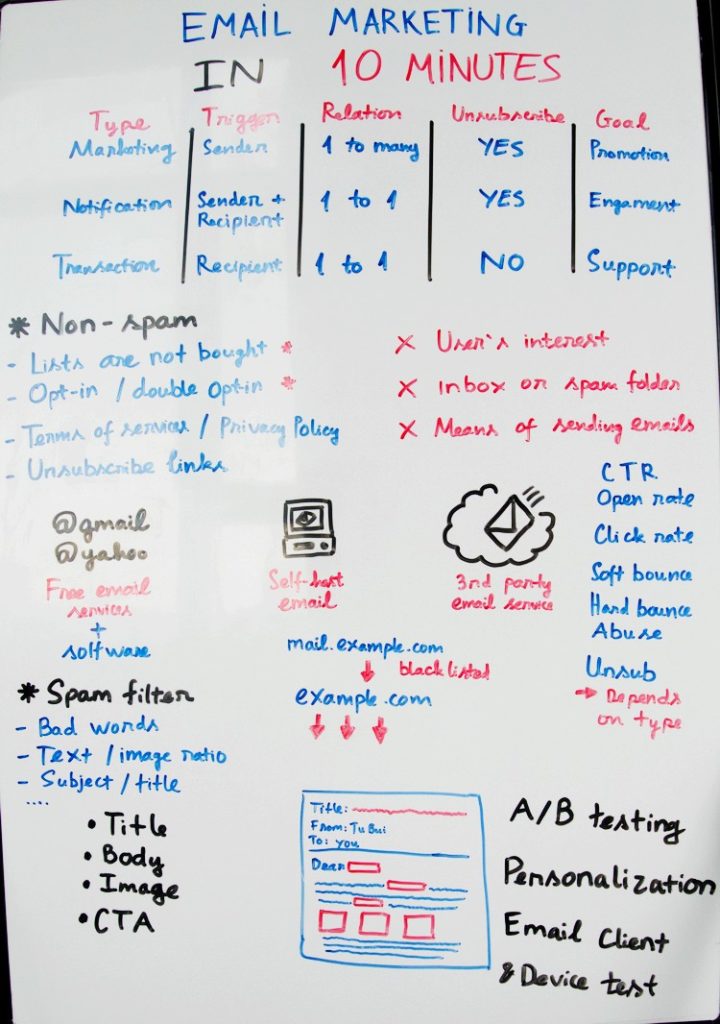 EMAIL MARKETING
IN 10 MINUTES
Type Trigger Relation Unsubscribe Goal
Marketing Sender 1 to many YES Promotion
Notification Sender + Recipient 1 to 1 YES Engament
Transaction Recipient 1 to 1 NO Support
* Non-spam
- Lists are not bought *
- Opt-in / double opt-in *
- Terms of services / Privacy Policy
- Unsubscribe links
X User's interest
X Inbox or spam folder
X Means of sending emails
@gmail
@yahoo
Free email
services
+
software
Self-host
email
3rd party
email service
mail.example.com
blacklisted
example.com
CTR
Open rate
Click rate
Soft bounce
Hard bounce
Abuse
Unsub
→ Depends
on type
* Spam filter
- Bad words
- Text / image ratio
- Subject / title
....
• Title
• Body
• Image
• CTA
Title:
From: Tu Bui
To: you
Dear
A/B testing
Personalization
Email Client
& Device test